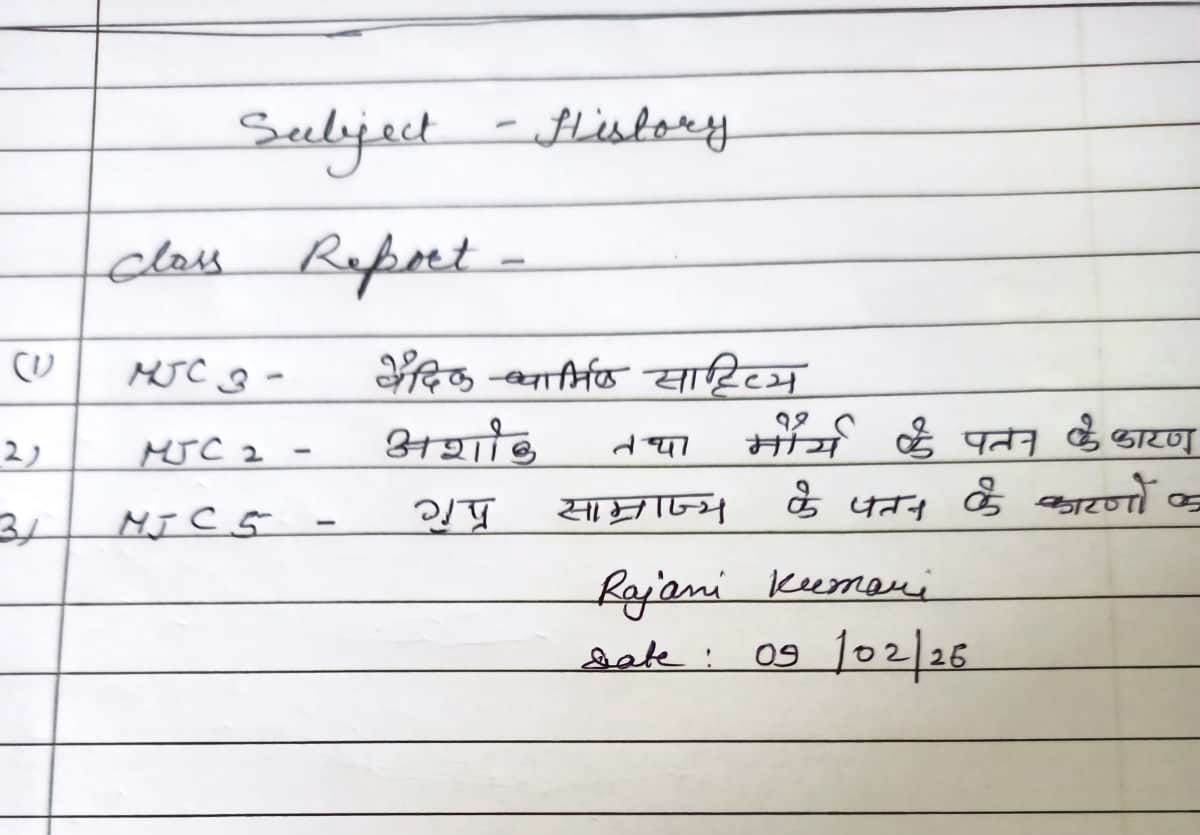 Subject - History
Class Report -
(1) MJC 3 - वैदिक धार्मिक साहित्य
2) MJC 2 - अशोक तथा मौर्य के पतन के कारण
3) MJC 5 - गुप्त साम्राज्य के पतन के कारणों क
Rajani Kumari
Date : 09/02/26